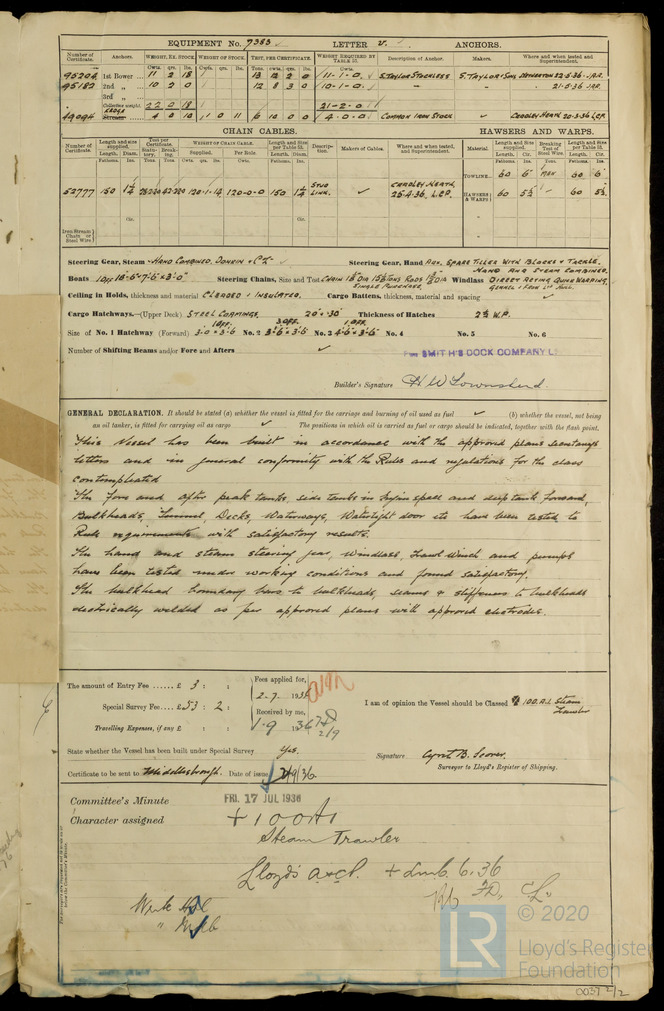 EQUIPMENT No. 7383 LETTER v. ANCHORS.
Number of Certificate. Anchors. WEIGHT, EX. STOCK. WEIGHT OF STOCK. TEST, PER CERTIFICATE. WEIGHT REQUIRED BY TABLE 53. Description of Anchor. Makers. Where and when tested and Superintendent.
Cwts. qrs. lbs. Cwts. qrs. lbs. Tons. cwts. qrs. lbs. Cwts.
95204 1st Bower 11 2 18 13 12 2 0 11-1-0 S. TAYLOR STOCKLESS S. TAYLOR & SONS NETHERTON 22.5.36 J.A.R.
95182 2nd „ 10 2 0 12 8 3 0 10-1-0 21-5-36 J.A.R.
3rd „
Collective weight. 22 0 18 21-2-0
49094 KEDGE Stream 4 0 10 1 0 11 6 10 0 0 4-0-0 COMMON IRON STOCK CRADLEY HEATH 20-3-36 L.C.P.
CHAIN CABLES. HAWSERS AND WARPS.
Number of Certificate. Length and size supplied. Test per Certificate. WEIGHT OF CHAIN CABLE. Length and Size per Table 53. Description. Makers of Cables. Where and when tested, and Superintendent. Material. Length and Size supplied. Breaking Test of Steel Wire. Length and Size per Table 53.
Length. Diam. Statutory. Breaking. Supplied. Per Rule. Length. Diam. Length. Cir. Length. Cir.
Fathoms. Ins. Tons. Tons. Cwts. qrs. lbs. Cwts. Fathoms. Ins. Fathoms. Ins. Tons. Fathoms. Ins.
TOWLINE 60 6" MAN 60 6"
52777 150 1¼ 120-1-14 120-0-0 150 1¼ STUD LINK. CRADLEY HEATH 25-4-36. L.C.P. HAWSERS & WARPS 60 5½ 60 5½
Cir. Cir.
Iron Stream Chain or Steel Wire
Steering Gear, Steam HAND COMBINED, DONKIN & Co Ltd Steering Gear, Hand ARV. SPARE TILLER WITH BLOCKS & TACKLE.
HAND AND STEAM COMBINED.
Boats 1 OFF 18'-6"×7'-6"×3'-0" Steering Chains, Size and Test CHAIN 1⅛"DIA 15¾TONS RODS DIA Windlass DIRECT ACTING QUICK WARPING,
SINGLE PURCHASE
Ceiling in Holds, thickness and material CLEADED & INSULATED. Cargo Battens, thickness, material and spacing
Cargo Hatchways.—(Upper Deck) STEEL COAMINGS. 20"&30" Thickness of Hatches 2½ W.P.
1 OFF. 3 OFF. 1 OFF.
Size of No. 1 Hatchway (Forward) 3-0×3-6 No. 2 3-6×3-6 No. 3 4-6×3-6 No. 4 No. 5 No. 6
Number of Shifting Beams and/or Fore and Afters
For SMITH'S DOCK COMPANY L
Builder's Signature H W Townshend.
GENERAL DECLARATION. It should be stated (a) whether the vessel is fitted for the carriage and burning of oil used as fuel (b) whether the vessel, not being
an oil tanker, is fitted for carrying oil as cargo The positions in which oil is carried as fuel or cargo should be indicated, together with the flash point.
This Vessel has been built in accordance with the approved plans Secretary's
letters and in general conformity with the Rules and regulations for the class
contemplated
The fore and after peak tanks, side tanks in Engine space and deep tank forward,
Bulkheads, Tunnel, Decks, Waterways, Watertight door etc have been tested to
Rule requirements with satisfactory results.
The hand and steam steering gear, windlass, Trawl winch and pumps
have been tested under working conditions and found satisfactory.
The bulkhead boundary bars to bulkheads, seams & stiffeners to bulkheads
electrically welded as per approved plans with approved electrodes.
The amount of Entry Fee ...... £ 3 : :
Fees applied for,
2-7. 1936
Special Survey Fee.... £ 53 : 2 :
Received by me,
1.9 1936
2/9
Travelling Expenses, if any £ : :
I am of opinion the Vessel should be Classed 100.A.1. Steam
Trawler
State whether the Vessel has been built under Special Survey Yes.
Signature Cyril B. Scorer.
Surveyor to Lloyd's Register of Shipping.
Certificate to be sent to Middlesbrough. Date of issue 2/9/36
Committee's Minute FRI. 17 JUL 1936
Character assigned +100A1
Steam Trawler
Lloyd's a&cp. +LMC 6.36
FD, CL.
© 2020
LR
Lloyd's Register
Foundation
2/2